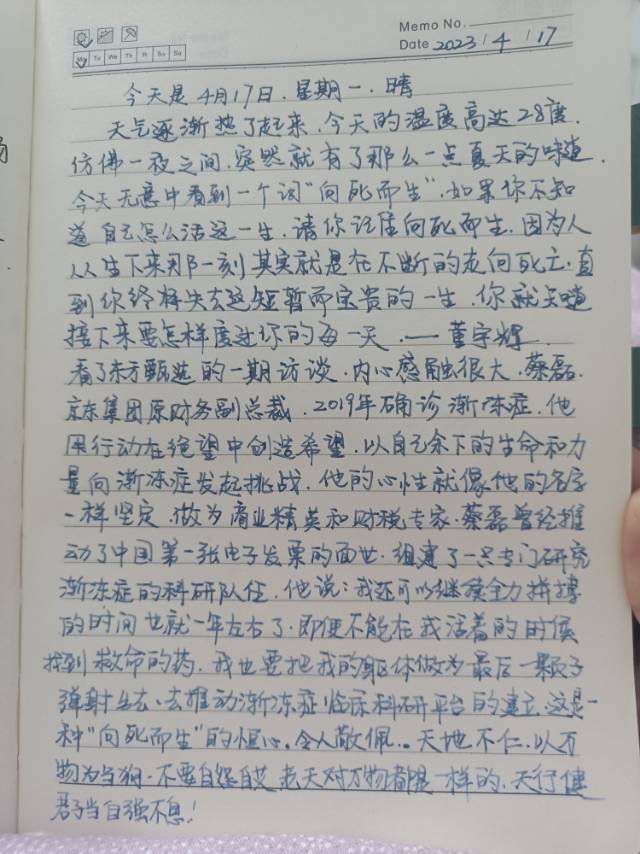 Memo No.
Mo Tu We Th Fr Sa Su
Date 2023 / 4 / 17
今天是4月17日.星期一.晴
天气逐渐热了起来.今天的温度高达28度.
仿佛一夜之间.突然就有了那么一点夏天的味道.
今天无意中看到一个词"向死而生".如果你不知
道自己怎么活这一生.请你记住向死而生.因为人
从生下来那一刻其实就是在不断的走向死亡.直
到你终将失去这短暂而宝贵的一生.你就知道
接下来要怎样度过你的每一天.——董宇辉.
看了东方甄选的一期访谈.内心感触很大.蔡磊.
京东集团原财务副总裁.2019年确诊渐冻症.他
用行动在绝望中创造希望.以自己余下的生命和力
量向渐冻症发起挑战.他的心性就像他的名字
一样坚定.做为商业精英和财税专家.蔡磊曾经推
动了中国第一张电子发票的面世.组建了一只专门研究
渐冻症的科研队伍.他说:我还可以继续全力拼搏
的时间也就一年左右了.即便不能在我活着的时候
找到救命的药.我也要把我的躯体做为最后一颗子
弹射出去、去推动渐冻症临床科研平台的建立.这是一
种"向死而生"的恒心.令人敬佩..天地不仁.以万
物为刍狗.不要自怨自艾.老天对万物都是一样的.天行健
君子当自强不息!